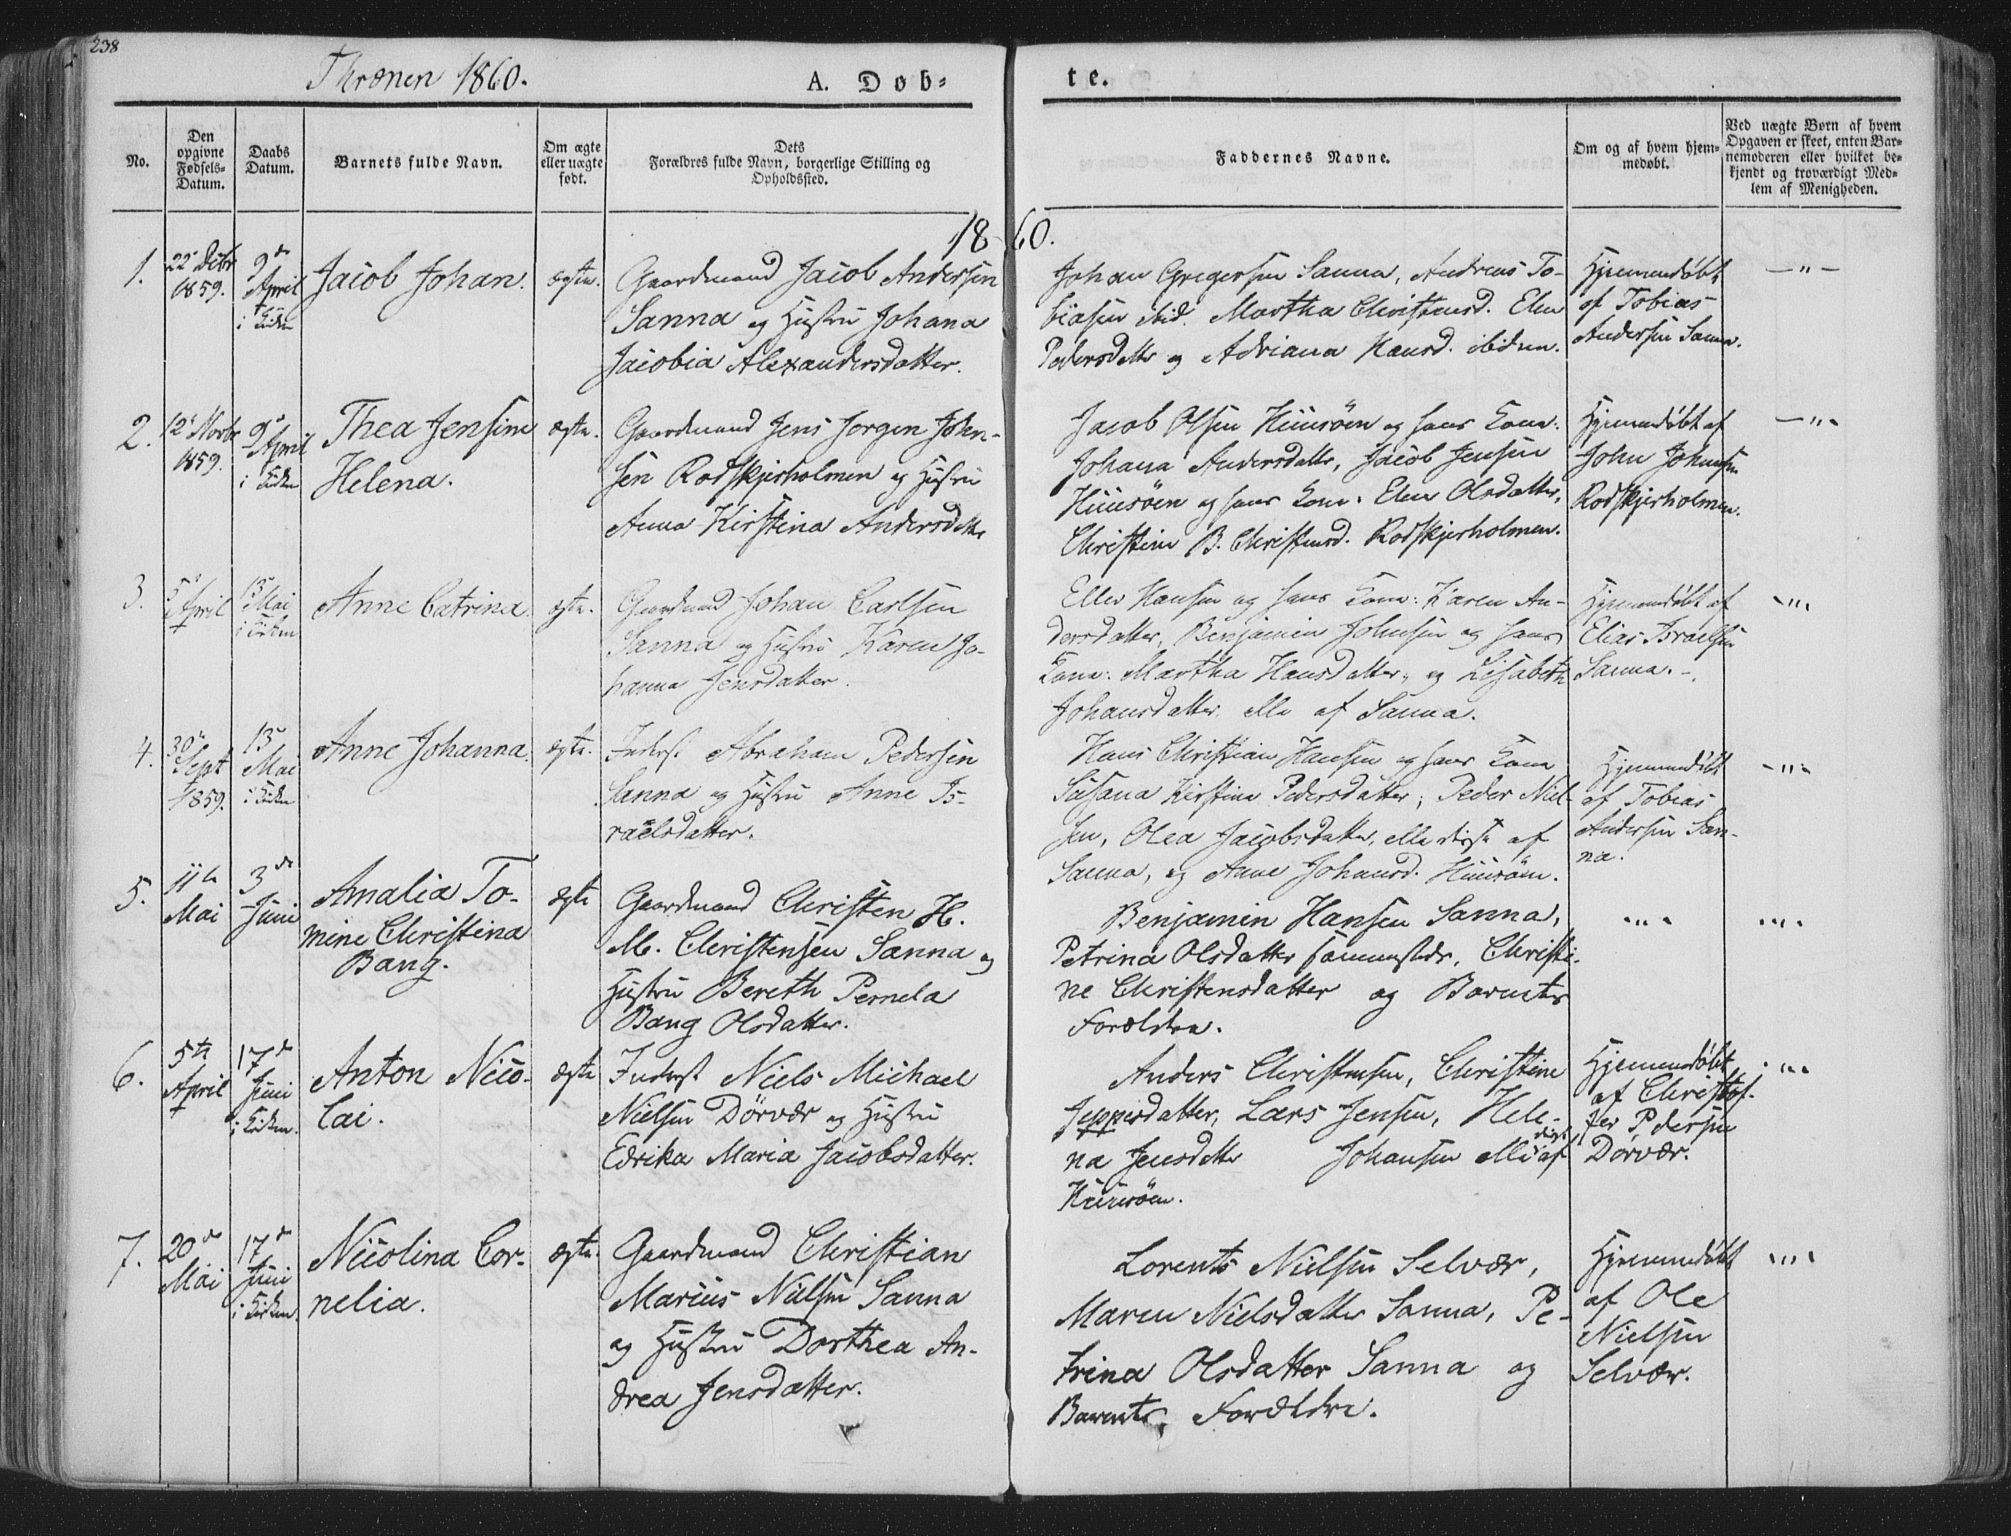 238
Thrænen 1860.
A. Døb-
te.
No.
Den opgivne Fødsels-Datum.
Daabs Datum.
Barnets fulde Navn.
Om ægte eller uægte født.
Dets Forældres fulde Navn, borgerlige Stilling og Opholdssted.
Faddernes Navne.
Om og af hvem hjem-medøbt.
Ved uægte Børn af hvem Opgaven er skeet, enten Bar-nemoderen eller hvilket be-kjendt og troværdigt Med-lem af Menigheden.
1860.
1.
22 Decbr 1859.
9de April i Kirken
Jacob Johan.
ægte.
Gaardmand Jacob Andersen
Sanna og Hustru Johana
Jacobia Alexandersdatter.
Johan Gregersen Sanna, Andreas To-
biasen ibid. Martha Christensd. Elen
Pedersdatter og Adriana Hansd. ibidem.
Hjemmedøbt
af Tobias
Andersen Sanna.
— " —
2.
12 Novbr 1859.
9de April i Kirken
Thea Jensine
Helena.
ægte.
Gaardmand Jens Jørgen John-
sen Rodskjerholmen og Hustru
Anna Kirstina Andersdatter
Jacob Olsen Huusöen og hans Kone:
Johana Andersdatter, Jacob Jensen
Huusöen og hans Kone: Elen Olsdatter,
Christine B. Christensd. Rodskjerholmen.
Hjemmedøbt af
John Johnsen
Rodskjerholmen.
— " —
3.
5te April
13de Mai i Kirken
Anne Catrina.
ægte.
Gaardmand Johan Carlsen
Sanna og Hustru Karen Jo-
hanna Jensdatter.
Eller Hansen og hans Kone: Karen An-
dersdatter, Benjamin Johnsen og hans
Kone: Martha Hansdatter, og Lisabeth
Johansdatter alle af Sanna.
Hjemmedøbt af
Elias Israelsen
Sanna. -.
- " -
4.
30te Sept 1859.
13de Mai i Kirken
Anne Johanna.
ægte.
Inderst Abraham Pedersen
Sanna og Hustru Anne Is-
raelsdatter.
Hans Christian Hansen og hans Kone
Susana Kirstine Pedersdatter; Peder Niel-
sen, Olea Jacobsdatter, alle disse af
Sanna, og Anne Johansd. Huusöen.
Hjemmedøbt
af Tobias
Andersen San-
na.
- " -
5.
11te Mai
3de Juni
Amalia To-
mine Christina
Bang.
ægte
Gaardmand Christen H.
M. Christensen Sanna og
Hustru Bereth Pernela
Bang Olsdatter.
Benjamin Hansen Sanna,
Petrina Olsdatter sammesteds, Christi-
ne Christensdatter og Barnets
Forældre.
- " -
- " -
6.
5te April
17de Juni i Kirken.
Anton Nico-
lai.
ægte
Inderst Niels Michael
Nielsen Dörvær og Hustru
Edrika Maria Jacobsdatter.
Anders Christensen, Christine
Jeppisdatter, Lars Jensen, Hele-
na Jensdatter Johansen alle disse af
Huusöen.
Hjemmedøbt
af Christof-
fer Pedersen
Dorvær.
- " -
7.
20de Mai
17de Juni i Kirken.
Nicolina Cor-
nelia.
ægte.
Gaardmand Christian
Marius Nielsen Sanna
og Hustru Dorthea An-
drea Jensdatter.
Lorents Nielsen Selvær,
Maren Nielsdatter Sanna, Pe-
trina Olsdatter Sanna og
Barnets Forældre.
Hjemmedøbt
af Ole
Nielsen
Selvær.
- " -